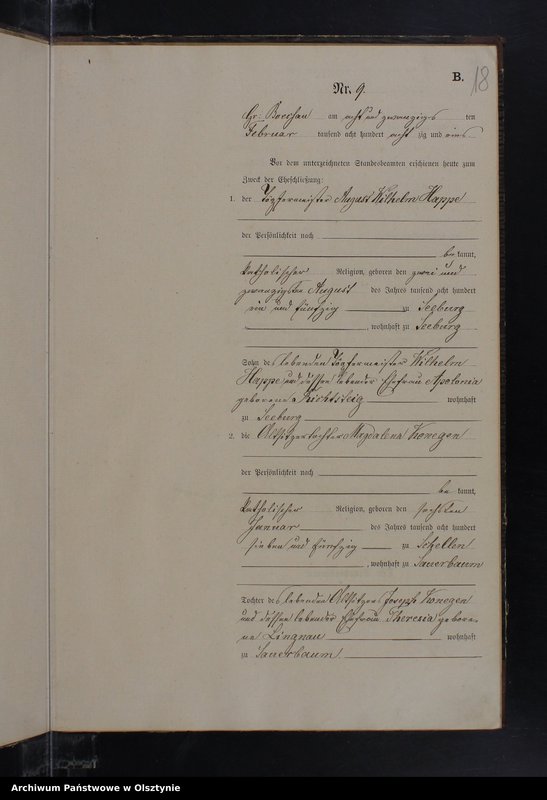 B.
18
Nr. 9.
Gr. Boessau am acht und zwanzigs ten
Februar tausend acht hundert acht zig und eins
Vor dem unterzeichneten Standesbeamten erschienen heute zum
Zweck der Eheschließung:
1. der Töpfermeister August Wilhelm Happe
der Persönlichkeit nach
be kannt,
katholischer Religion, geboren den zwei und
zwanzigsten August des Jahres tausend acht hundert
ein und fünfzig zu Seeburg
, wohnhaft zu Seeburg
Sohn des lebenden Töpfermeister Wilhelm
Happe und dessen lebender Ehefrau Apolonia
geborene wohnhaft
zu Seeburg
2. die Altsitzertochter Magdalena Konegen
der Persönlichkeit nach
be kannt,
katholischer Religion, geboren den sechsten
Januar des Jahres tausend acht hundert
sieben und fünfzig zu Schellen
, wohnhaft zu Sauerbaum
Tochter des lebenden Altsitzers Joseph Konegen
und dessen lebender Ehefrau Theresia gebore-
ne Lingnau wohnhaft
zu Sauerbaum
Archiwum Państwowe w Olsztynie